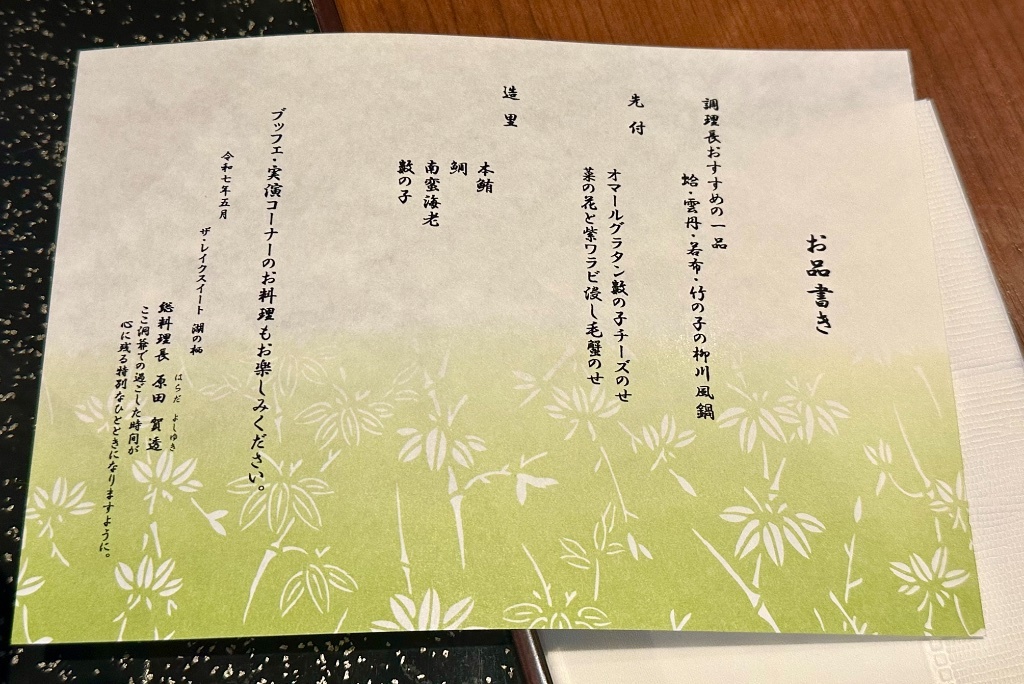 お品書き
調理長おすすめの一品
蛤・雲丹・若布・竹の子の柳川風鍋
先付
オマールグラタン数の子チーズのせ
菜の花と紫ワラビ浸し毛蟹のせ
造里
本鮪
鯛
南蛮海老
数の子
ブッフェ・実演コーナーのお料理もお楽しみください。
令和七年五月
ザ・レイクスイート 湖の栖
はらだ よしゆき
総料理長 原田 賀透
ここ洞爺での過ごした時間が
心に残る特別なひとときになりますように。